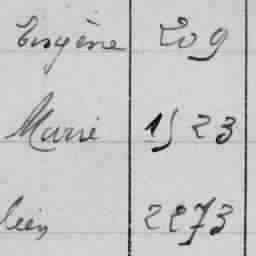 Eugène 209
Marie 1523
lien 2273